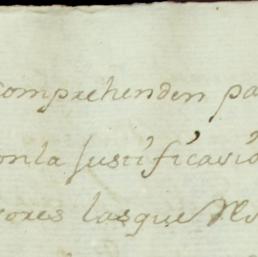 comprehenden pa
onla justificasio
ores lasque